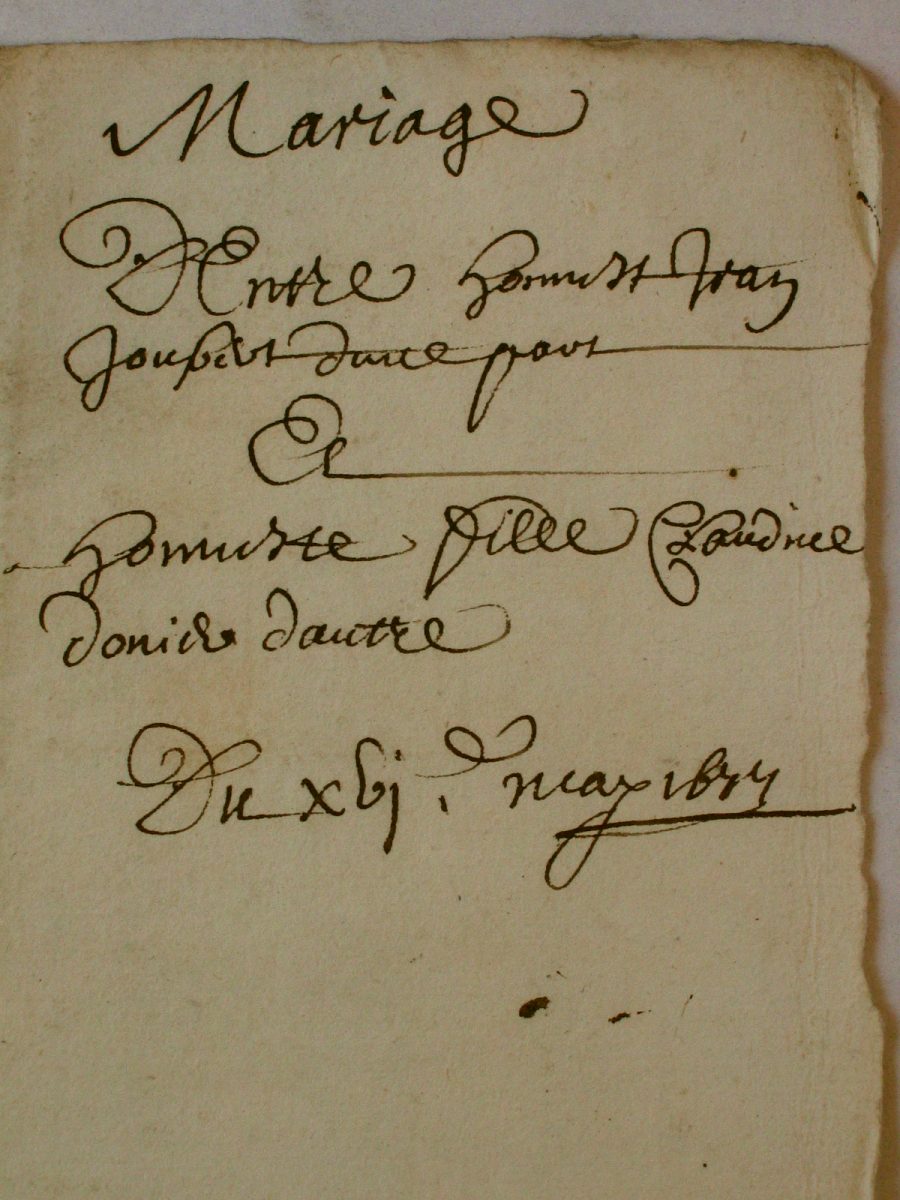 Mariage
D'Entre honneste Jean
Joubert dune part
Et
honneste fille Claudine
donier dautre
Du xvj.e may 16